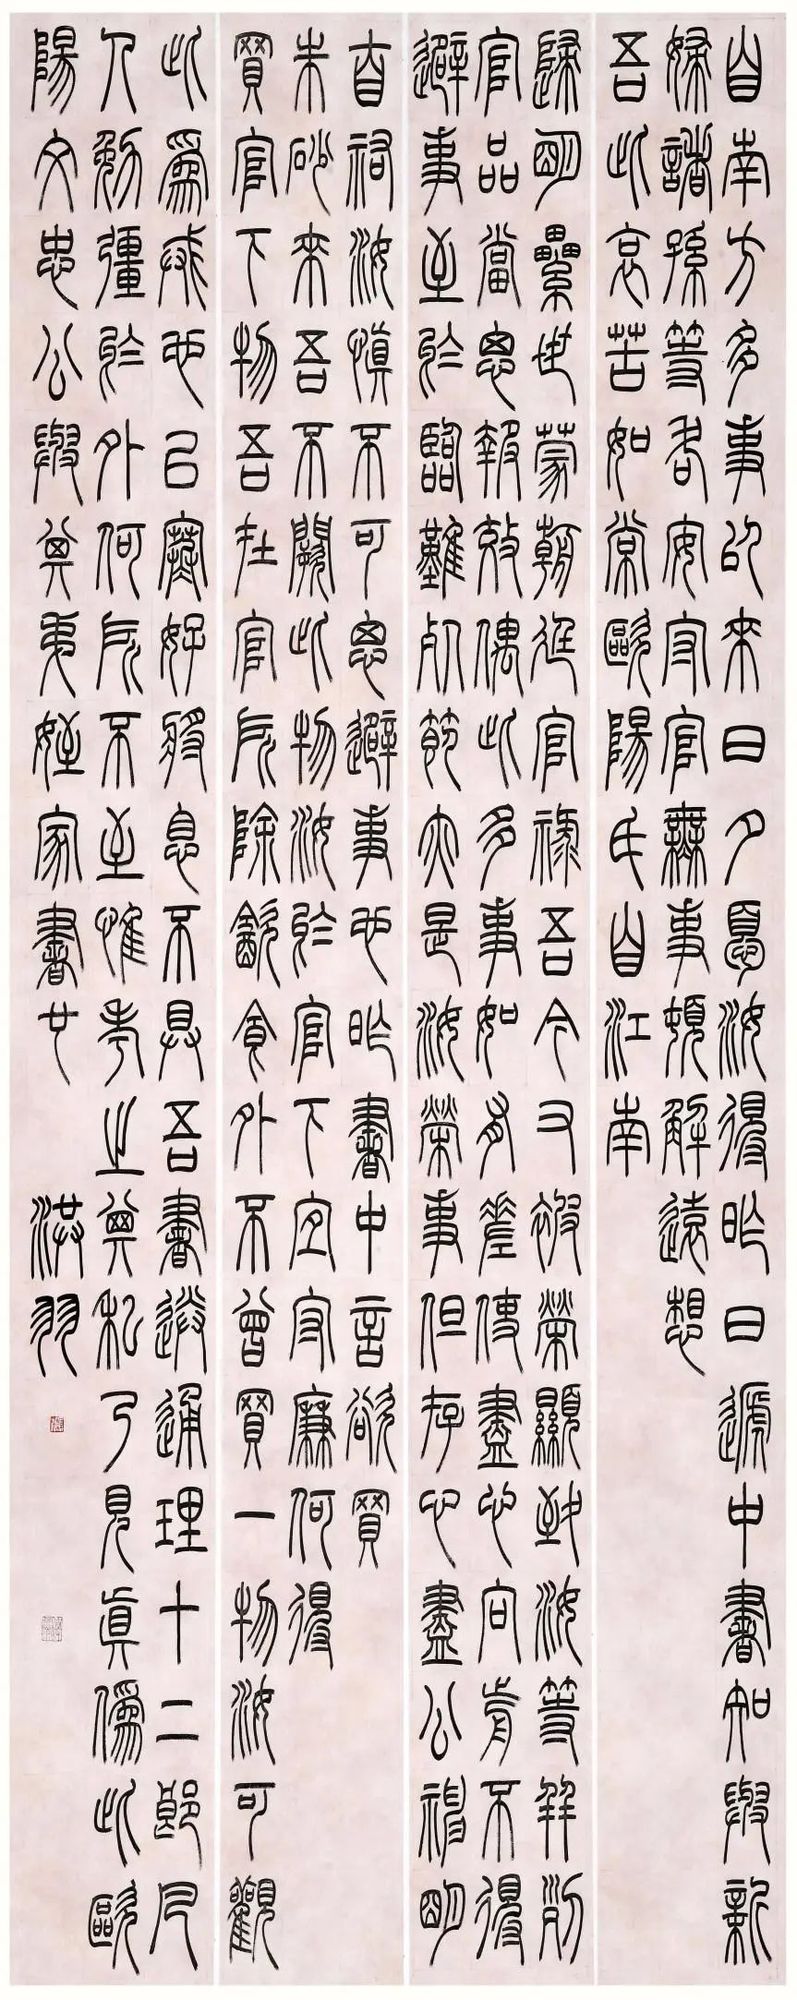 自南方多事以來日夕憂汝得昨日遞中書知與新
婦諸孫等各安守官無事頓解遠想
吾此哀苦如常歐陽氏自江南
歸明累世蒙朝廷官祿吾今又被榮顯致汝等並列
官品當思報效偶此多事如有差使盡心向前不得
避事至於臨難死節亦是汝榮事但存心盡公神明
自祐汝慎不可思避事也昨書中言欲買
朱砂來吾不闕此物汝於官下宜守廉何得
買官下物吾在官所除飲食外不曾買一物汝可觀
此為戒也已寒好將息不具吾書送通理十二郎凡
人勉彊於外何所不至惟考之其私乃見真偽此歐
陽文忠公與其弟姪家書也 洪羽